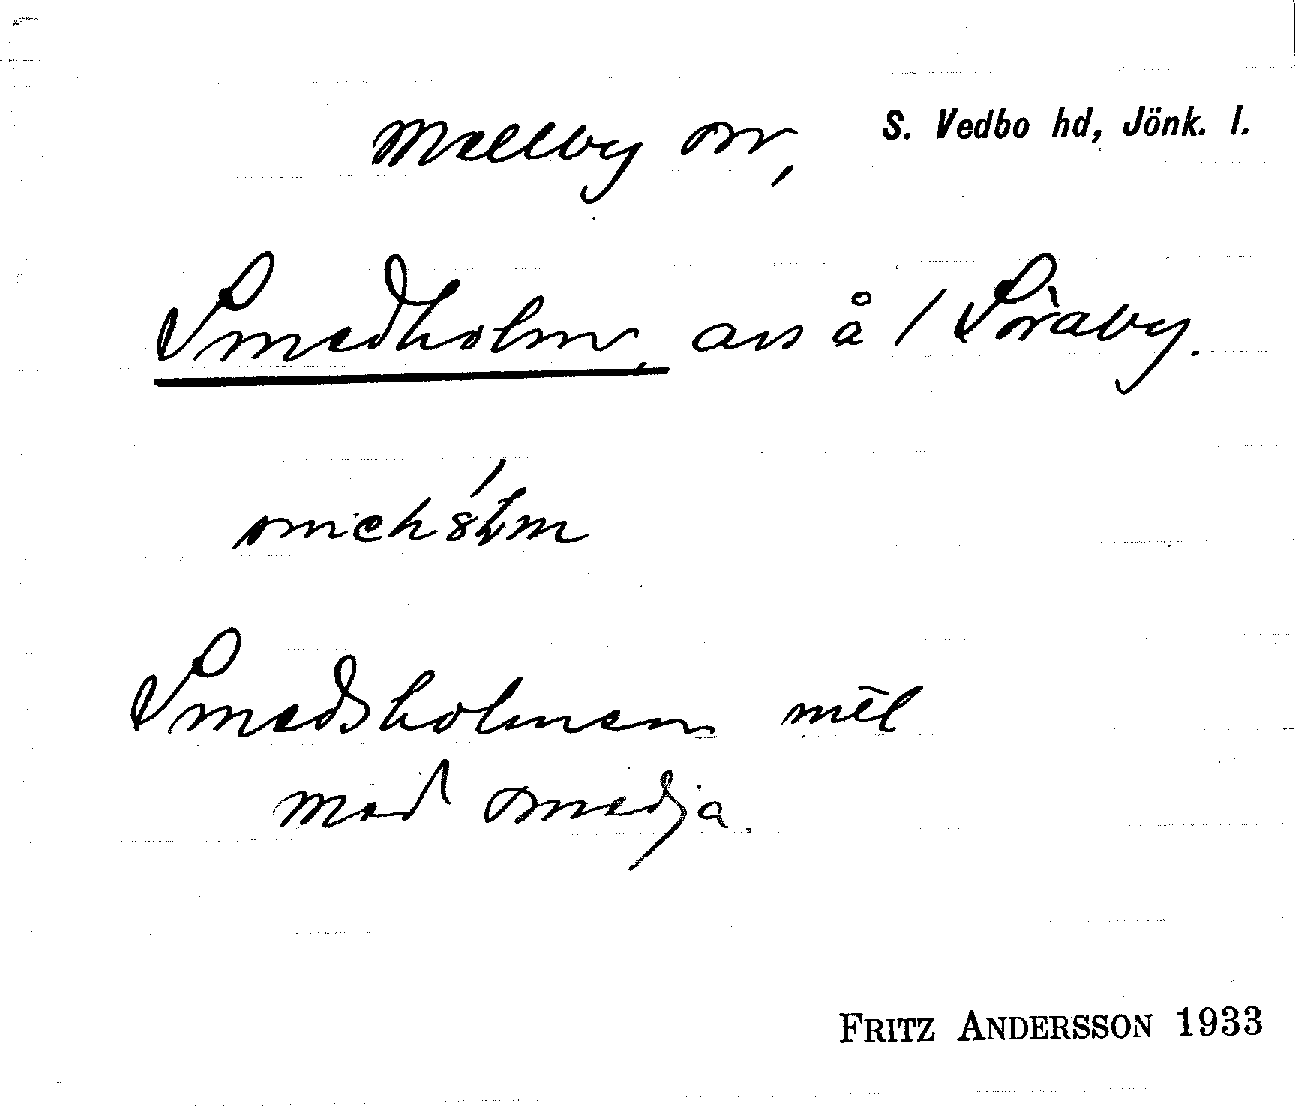 Mellby sn, S. Vedbo hd, Jönk. l.
Smedholm, avs å / Söraby.
Smedsholmen mēl
med smedja.
FRITZ ANDERSSON 1933